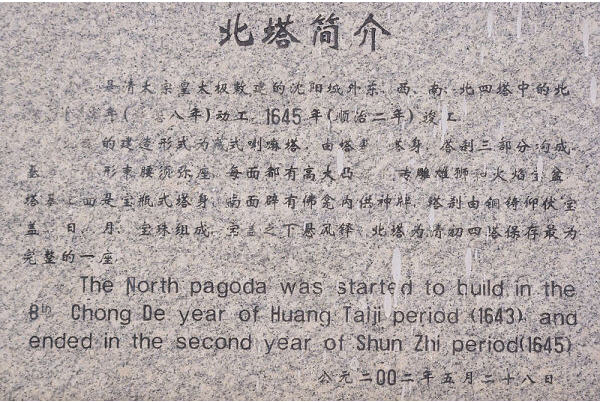 北塔简介
是清太宗皇太极敕建的沈阳城外东、西、南、北四塔中的北
年( 八年)动工,1645年(顺治二年)竣工
的建造形式为藏式喇嘛塔,由塔 塔身、塔刹三部分构成,
基 形束腰须弥座,每面都有高大凸 砖雕雄狮和火焰宝盆
塔 面是宝瓶式塔身,南面辟有佛龛内供神牌,塔刹由铜铸仰伏宝
盖、日、月、宝珠组成,宝盖之下悬风铎,北塔为清初四塔保存最为
完整的一座。
The North pagoda was started to build in the
8th Chong De year of Huang Taiji period (1643) and
ended in the second year of Shun Zhi period(1645)
公元二00二年五月二十八日